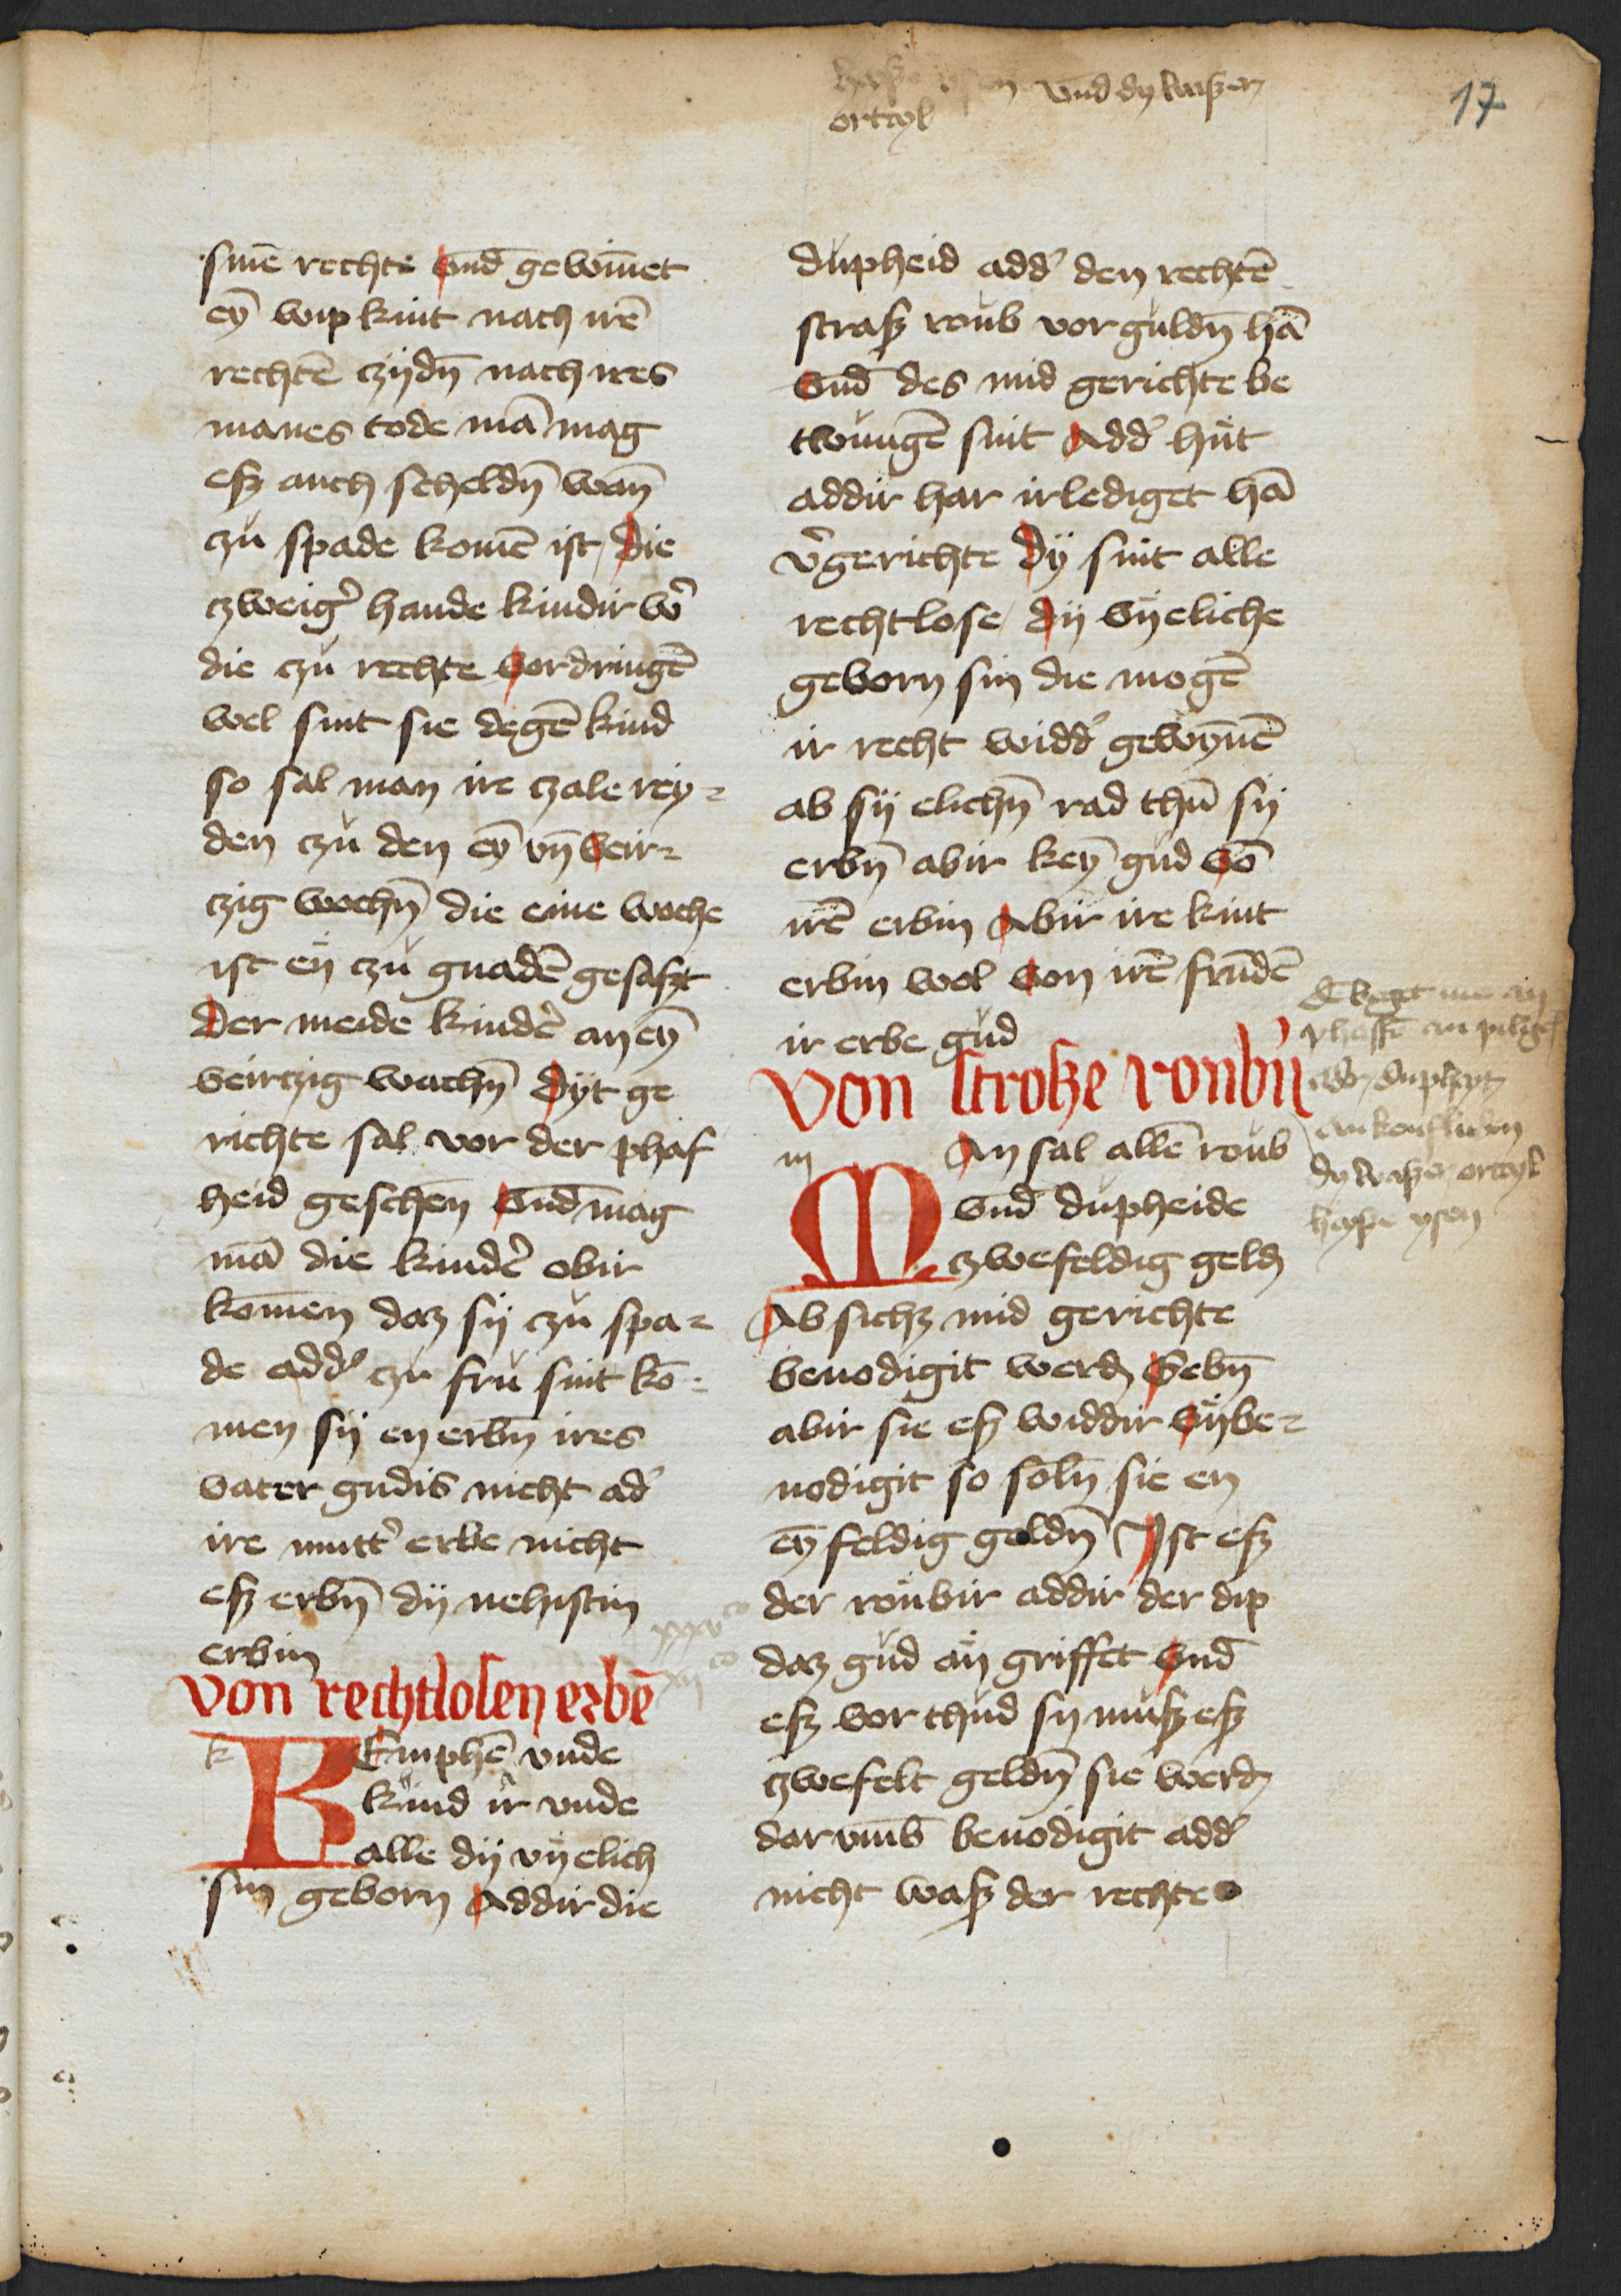 vnd dy waßer
orteyl
17
sinē rechte vnd gewīnet
eȳ wip kint nach irē
rechtē czijdn̄ nach ires
manes tode mā mag
eſz auch scheldn̄ wan̄
czů spade komē ist / die
czweig͛ hande kindir w͛
die czů rechte vordringē
wel sint sie degē kind
so sal man ire zale rey⸗
den czů den eȳ vn̄ veir⸗
czig wochn̄ die eine woche
ist en czů gnadē gesaſzt
Der meide kind͛ an eȳ
veirczig wachn̄ Dyt ge
richte sal vor der phaf
heid geschen̄ vnd mag
mā die kind͛ obir
komen daz sy czů spa⸗
de add͛ czů frů sint ko⸗
men sy en erbn̄ ires
vater gudis nicht ad͛
ire mutt͛ erbe nicht
eſz erbn̄ dy nehistin
erbin
Von rechtlosen erbē
k
KEmphē vnde
kind ir vnde
alle dy vyelich
sin geborn Addir die
důpheid add͛ den rechtē
straſz roůb vor guldn̄ hā
vnd des mid gerichte be
twůngē sint Add͛ hůt
addir har irlediget hā
v͛gerichte Dy sint alle
rechtlose / dy vyeliche
geborn sin die mogē
ir recht widd͛ gewynnē
ab sy elichn̄ rad thū sy
erbn̄ abir keȳ gůd vō
irē erbin Abir ire kint
erbin wol von irē frūdē
ir erbe gůd
Von stroſze roubn̄
m
MAn sal allē roůb
vnd důpheide
czwefeldig geld͛
Ab sichz mid gerichte
benodigit werd͛ Gebn̄
abir sie eſz widdir vnbe⸗
nodigit so soln̄ sie en
eȳfeldig geldn̄ Ist eſz
der roůbir addir der dip
daz gůd an griffet vnd
eſz vorthůd sy můſz eſz
czwefelt geldn̄ sie werd͛
dar vmb benodigit add͛
nicht waſz der rechte
phaffē
dy waſzer orteyl
heyſze ysen